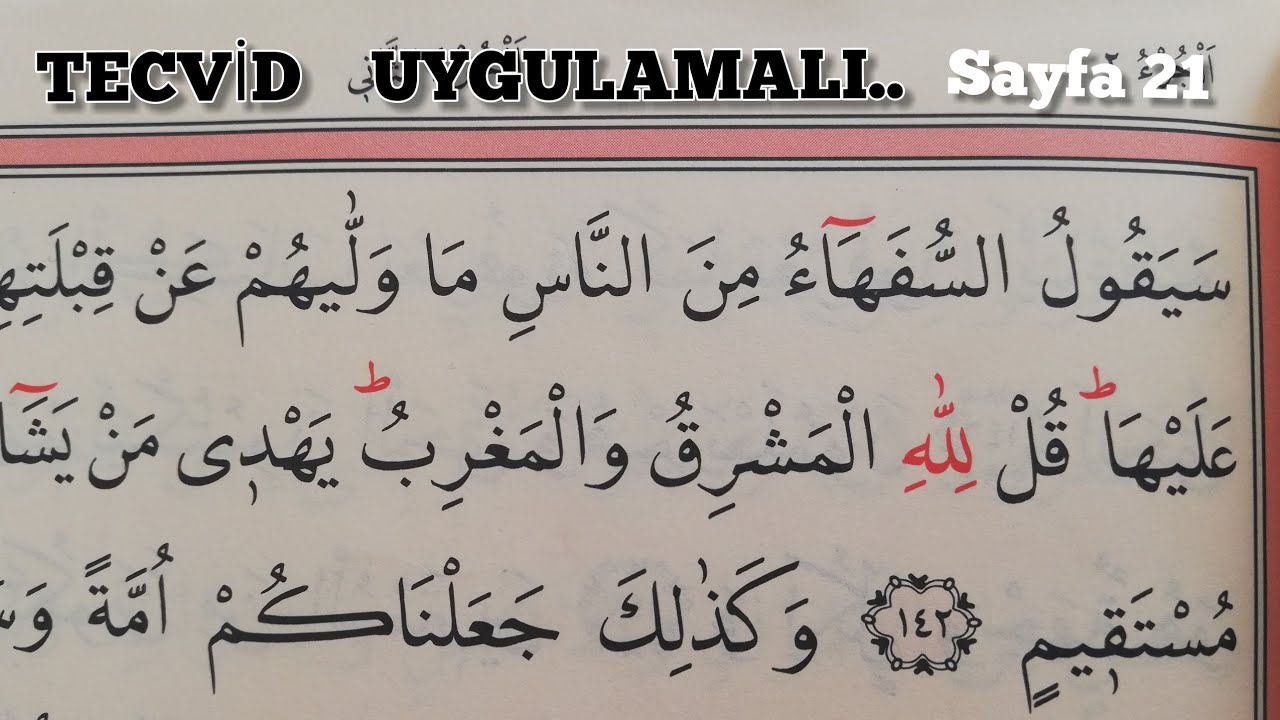 TECVİD UYGULAMALI.. Sayfa 21
سَيَقُولُ السُّفَهَٓاءُ مِنَ النَّاسِ مَا وَلّٰيهُمْ عَنْ
عَلَيْهَاۜ قُلْ لِلّٰهِ الْمَشْرِقُ وَالْمَغْرِبُۜ يَهْد۪ي مَنْ
مُسْتَق۪يمٍ ﴿١٤٢﴾ وَكَذٰلِكَ جَعَلْنَاكُمْ اُمَّةً